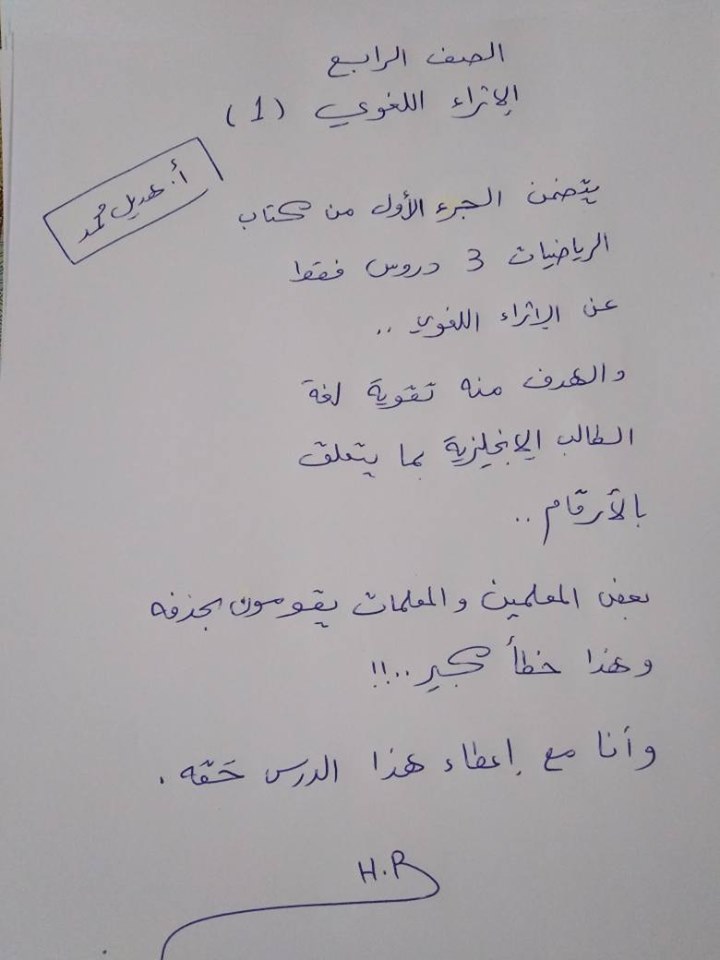 الصف الرابع
الإثراء اللغوي (1)
أ. هديل محمد
يتضمن الجزء الأول من كتاب
الرياضيات 3 دروس فقط
عن الإثراء اللغوي ..
والهدف منه تقوية لغة
الطالب الإنجليزية بما يتعلق
بالأرقام ..
بعض المعلمين والمعلمات يقومون بحذفه
وهذا خطأ كبير ..!!
وأنا مع إعطاء هذا الدرس حَقّه .
H.R